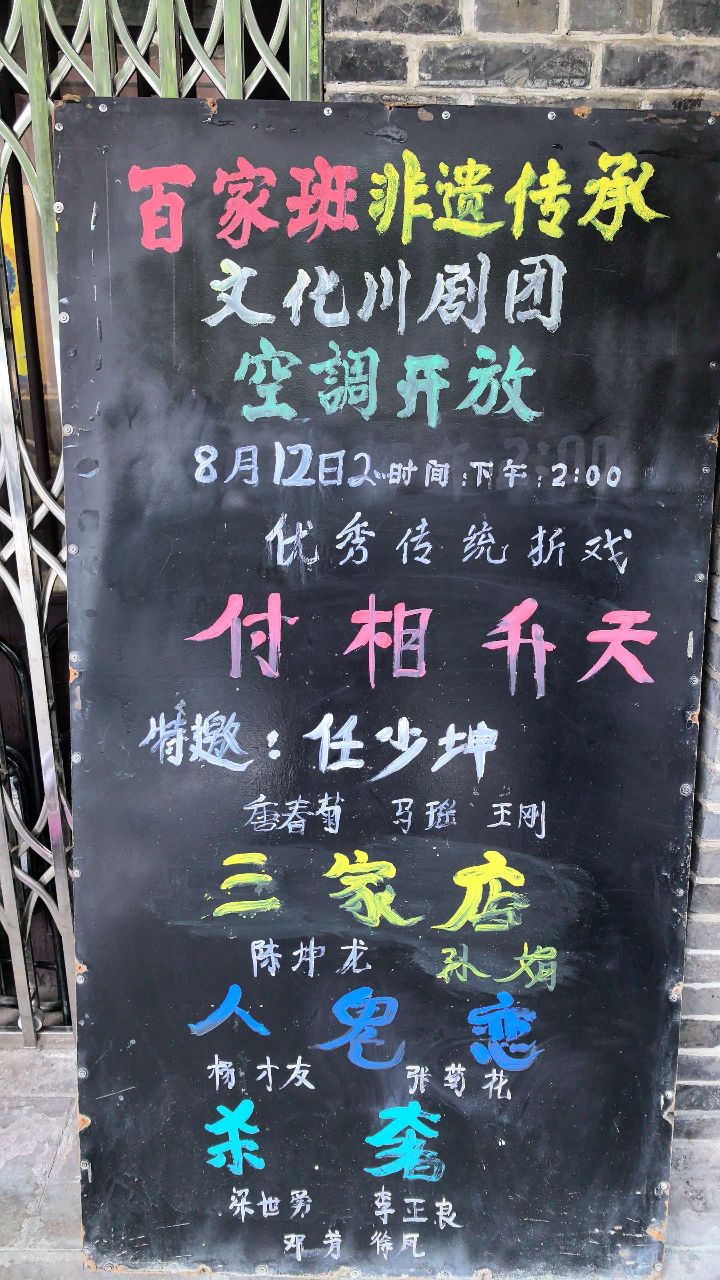 百家班非遗传承
文化川剧团
空調开放
8月12日2..时间:下午:2:00
优秀传统折戏
付相升天
特邀:任少坤
唐春菊 马瑶 王刚
三家店
陈坤龙 孙娟
人鬼恋
杨才友 张菊花
杀奢
梁世勇 李正良
邓芳 徐凡